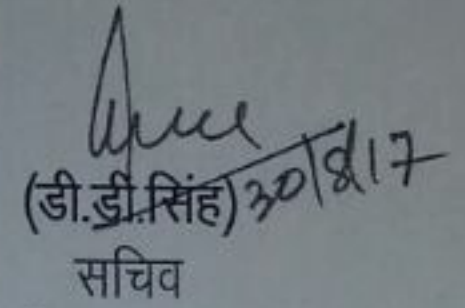 (डी.डी.सिंह) 30/8/17
सचिव